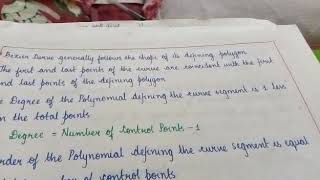 Bezier Curve generally follows the shape of its defining polygon
The first and last points of the curve are coincident with the first
and last points of the defining polygon
Degree of the Polynomial defining the curve segment is 1 less
the total points
Degree = Number of Control Points - 1
of the Polynomial defining the curve segment is equal
number of control points